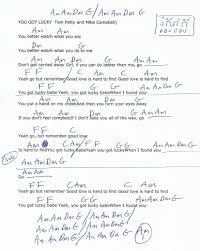 Am Am Dm G / Am Am Dm G
YOU GOT LUCKY Tom Petty and Mike Campbell)
Am Am
You better watch what you say
Dm G
You better watch what you do to me
Am Am Dm G
Don't get carried away Girl, if you can do better than me, go
F F C Am
Yeah go, but remember Good love is hard to find Good love is hard to find
F F G G
You got lucky babe Yeah, you got lucky babeWhen I found you
Am Am
You put a hand on my cheekAnd then you turn your eyes away
Am Am Dm G
If you don't feel complete If I don't take you all of the way, go
F F C
Yeah go, but remember good love
Am G F F G G
Is hard to findYou got lucky babeYeah you got luckyWhen I found you
Solo Am Am Dm G
Am Am
Go
F F C Am
Yeah go but remember Good love is hard to find Good love is hard to find
F F G G
You got lucky babe Yeah, you got lucky babeWhen I found you
Am Am Dm G / Am Am Dm G
Am Am Dm G / Am Am Dm G
Am